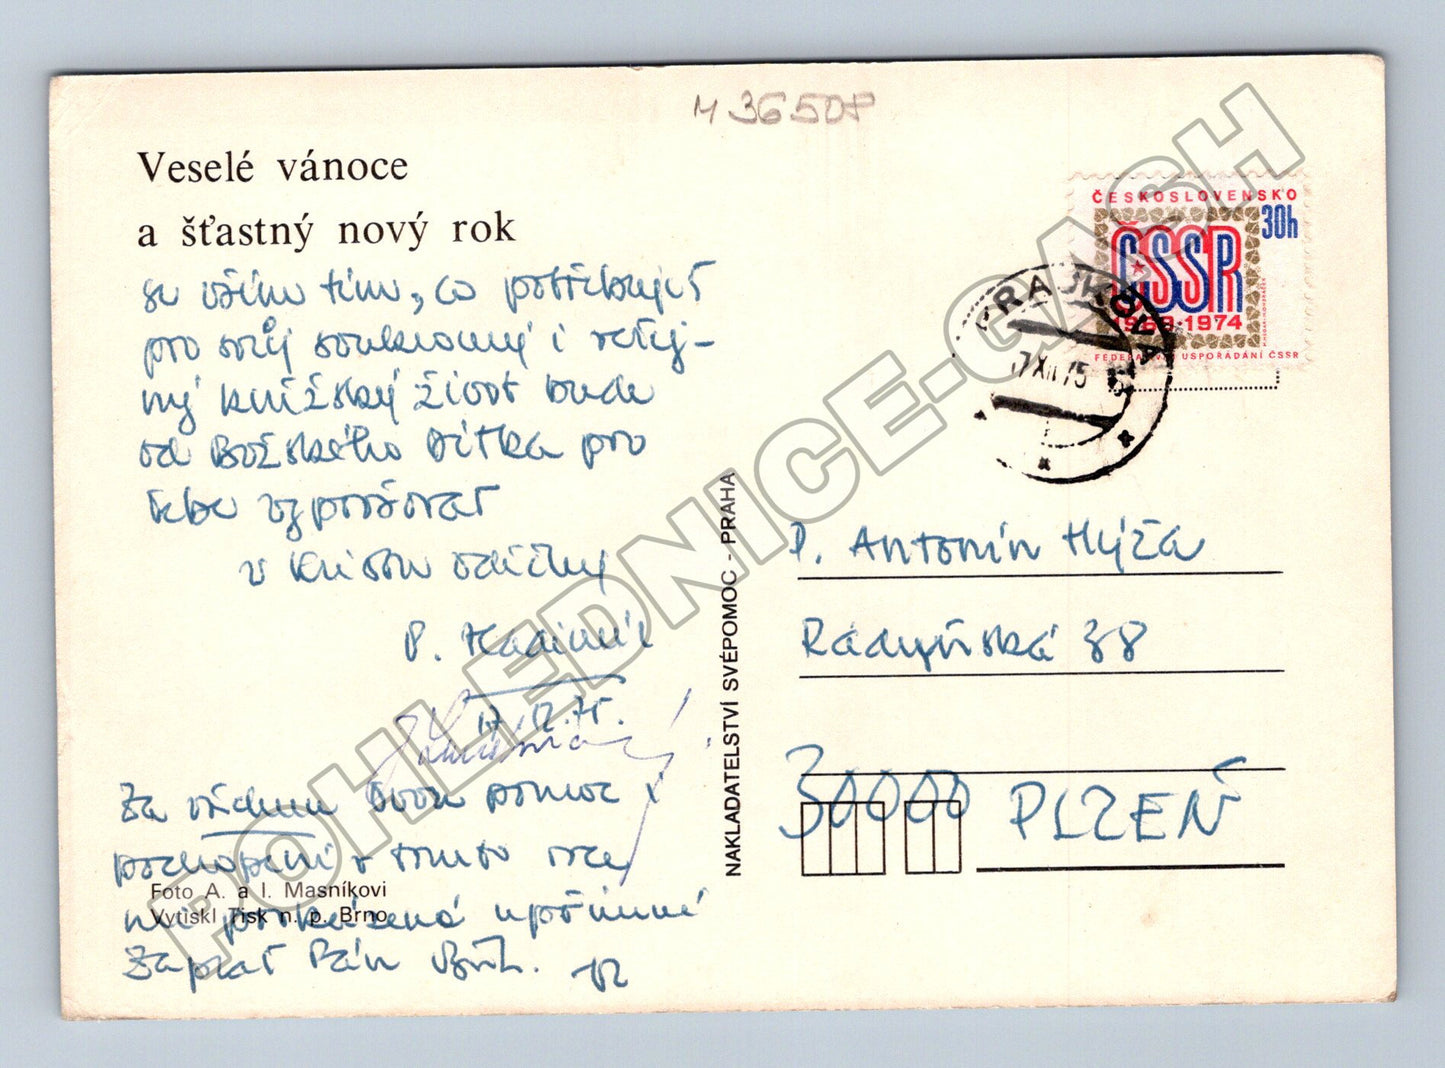 M 36508
Veselé vánoce
a šťastný nový rok
se vším tím, co potřebuješ
pro svůj soukromý i veřej-
ný kněžský život bude
od Božského Dítka pro
tebe vyprošovat
v Kristu oddaný
P. Vladimír
17. 12. 75.
Za všechnu Tvou pomoc i
pochopení v tomto roce
mi prokázaná upřímné
Zaplať Pán Bůh.
Foto A. a I. Masníkovi
Vytiskl Tisk n. p. Brno
NAKLADATELSTVÍ SVÉPOMOC - PRAHA
ČESKOSLOVENSKO
30h
ČSSR
1969·1974
FEDERATIVNÍ USPOŘÁDÁNÍ ČSSR
7 XII 75
P. Antonín Hýža
Radyňská 38
30000 PLZEŇ
POHLEDNICE-GASH